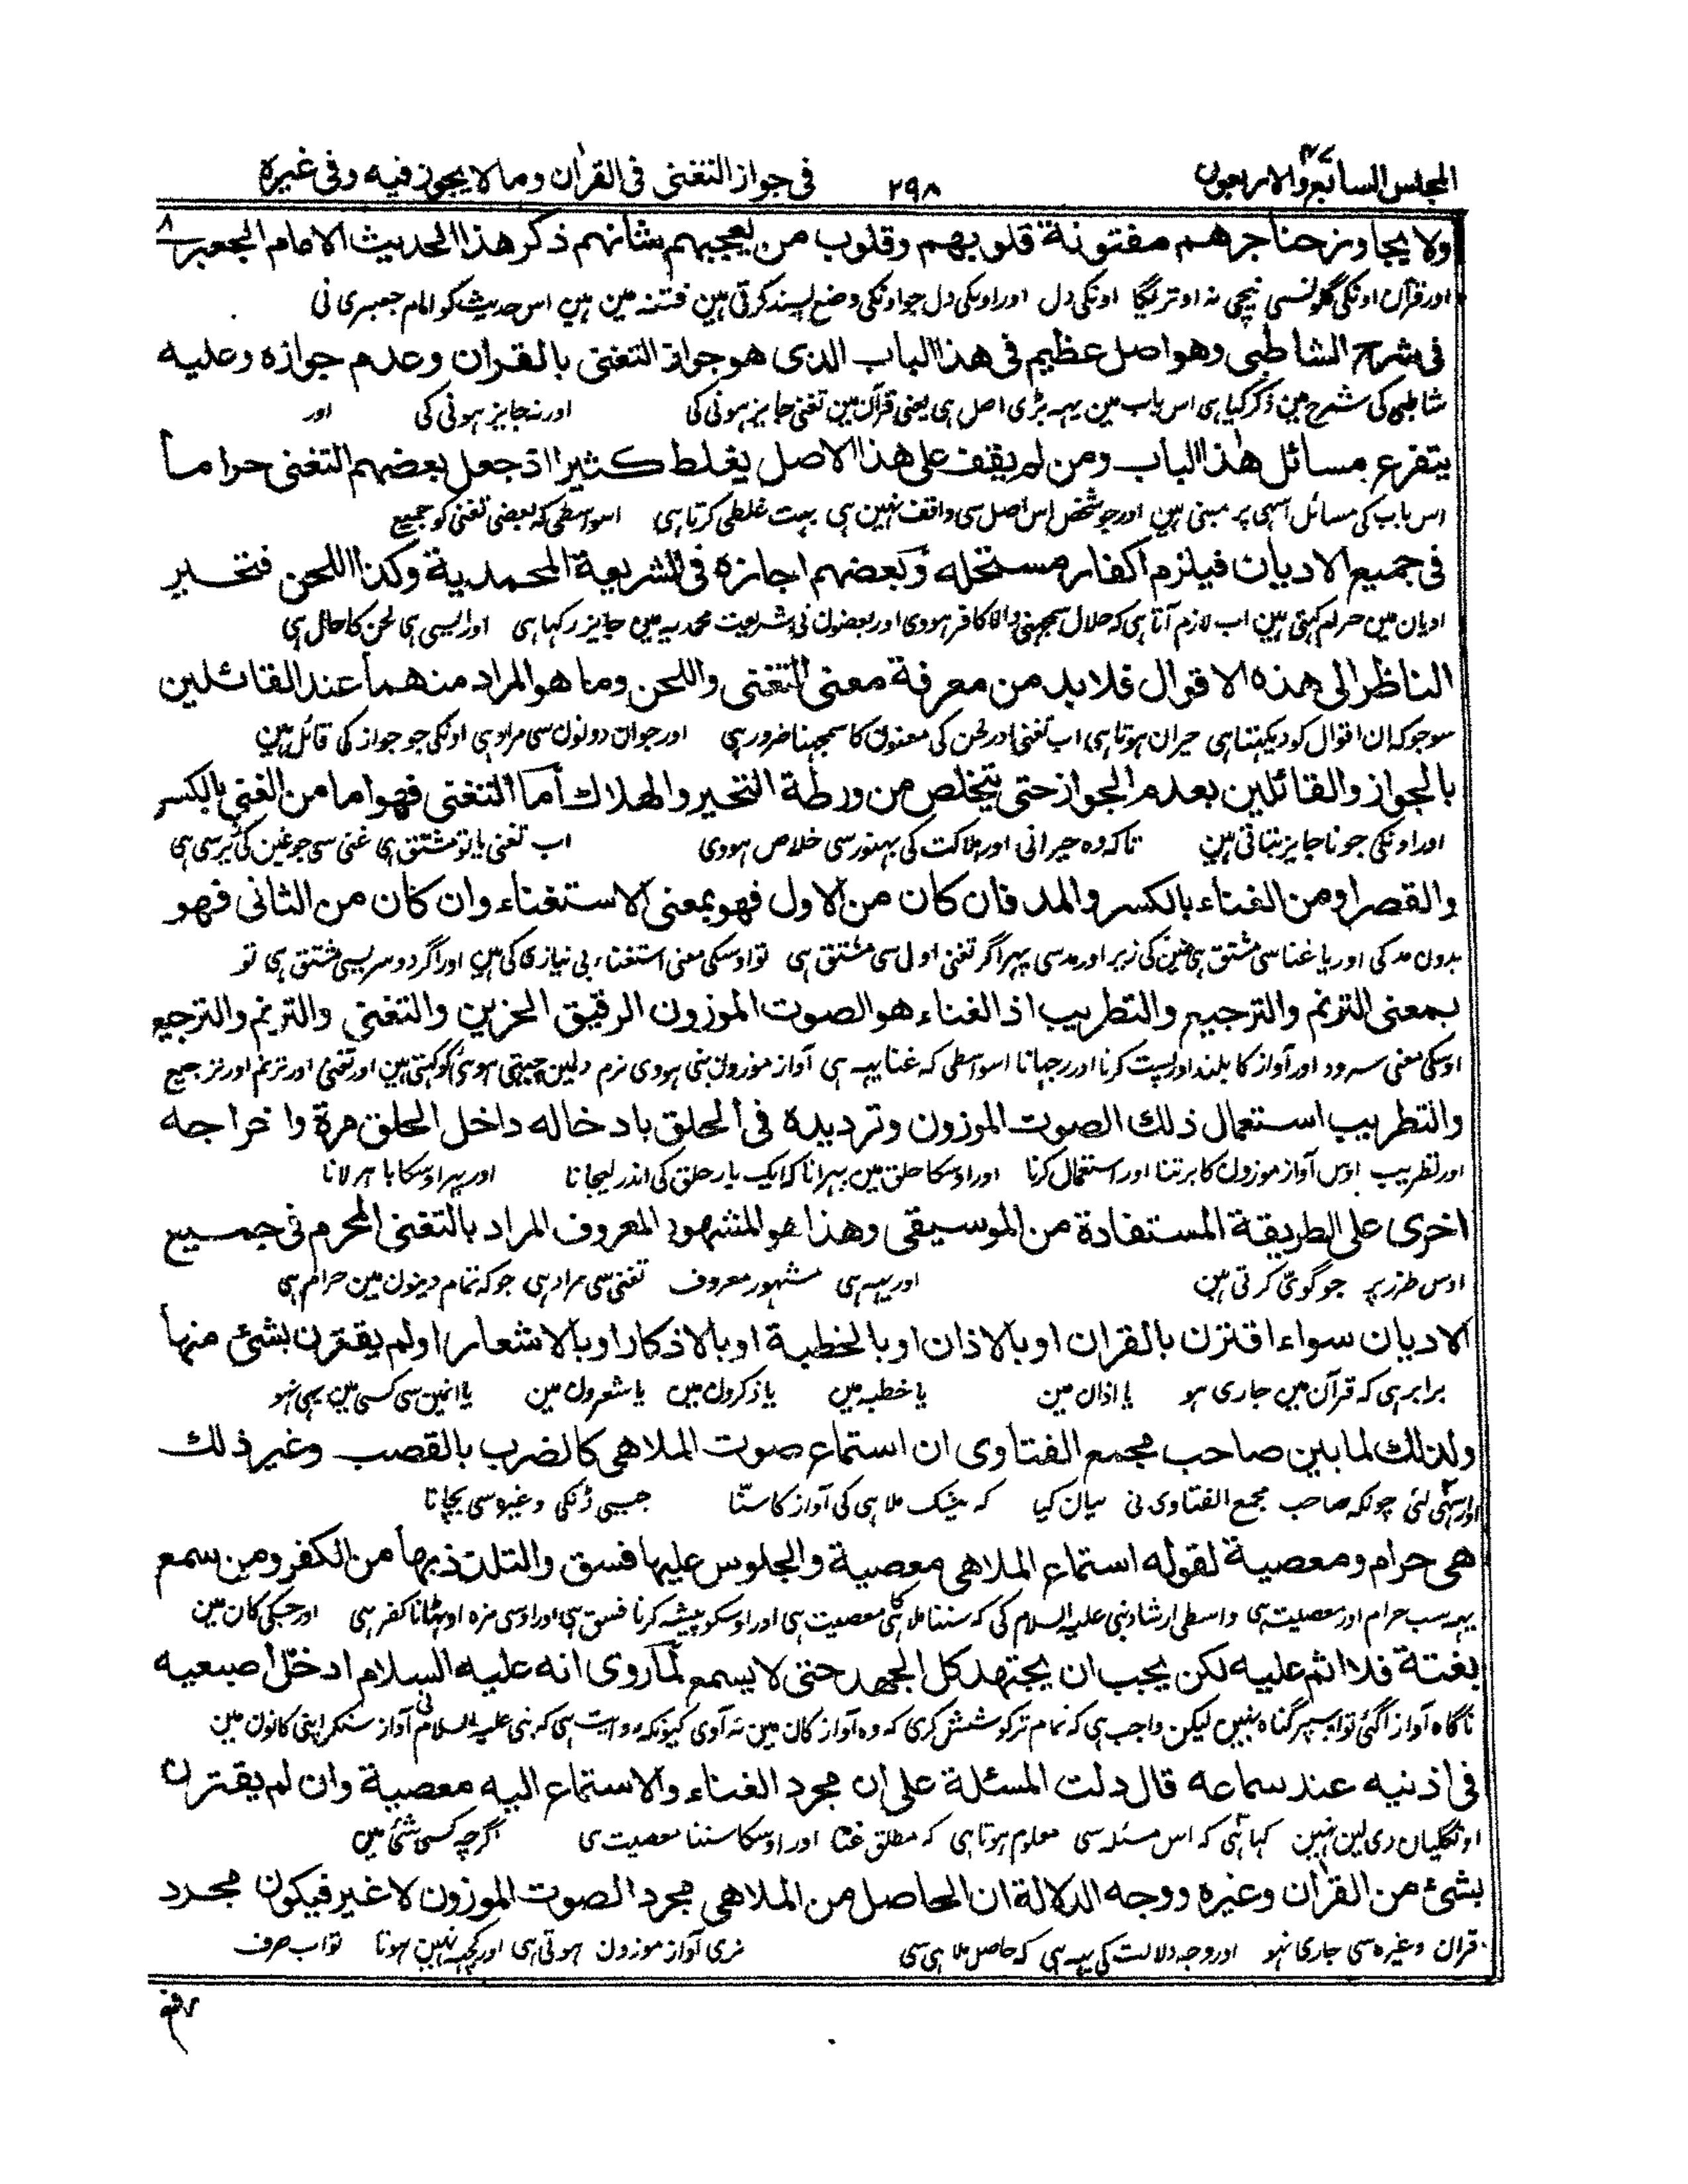 المجلس السابع والاربعون ۴۷ ۲۹۸ فى جواز التغنى فى القرأن وما لا يجوز فيه وفى غيره
ولا يجاوز حناجرهم مفتونة قلوبهم وقلوب من يعجبهم شانهم ذكر هذا الحديث الامام الجعبرى
اور قرآن اونکی گلونسی نیچی نہ اوتریگا اونکی دل اور اونکی دل جو اونکی وضع پسند کرتی ہین فتنہ مین ہین اس حدیث کو امام جعبری نی
فى شرح الشاطبى وهو اصل عظيم فى هذا الباب الذى هو جواز التغنى بالقران وعدم جوازه وعليه
شاطبی کی شرح مین ذکر کیا ہی اس باب مین یہہ بڑی اصل ہی یعنی قرآن مین تغنی جایز ہونی کی اور نہ جایز ہونی کی اور
يتفرع مسائل هذا الباب ومن لم يقف على هذا الاصل يغلط كثيرا اذ جعل بعضهم التغنى حراما
اس باب کی مسائل اسی پر مبنی ہین اور جو شخص اس اصل سی واقف نہین ہی بہت غلطی کرتا ہی اسواسطی کہ بعضی تغنی کو جمیع
فى جميع الاديان فيلزم اكفار مستحله وبعضهم اجازه فى الشريعة المحمدية وكذا اللحن فتحير
ادیان مین حرام کہتی ہین اب لازم آتا ہی کہ حلال سمجہنی والا کافر ہووی اور بعضون نی شریعت محمدیہ مین جایز رکہا ہی اور ایسی ہی لحن کا حال ہی
الناظر الى هذه الاقوال فلا بد من معرفة معنى التغنى واللحن وما هو المراد منهما عند القائلين
سو جو کہ ان اقوال کو دیکہتا ہی حیران ہوتا ہی اب تغنی اور لحن کی معنون کا سمجہنا ضرور ہی اور جو ان دونون سی مراد ہی اونکی جو جواز کی قائل ہین
بالجواز والقائلين بعدم الجواز حتى يتخلص من ورطة التحير والهلاك اما التغنى فهو اما من الغنى بالكسر
اور اونکی جو ناجایز بتاتی ہین تاکہ وہ حیرانی اور ہلاکت کی بہنور سی خلاص ہووی اب تغنی یا تو مشتق ہی غنی سی جو غین کی زیر سی ہی
والقصر او من الغناء بالكسر والمد فان كان من الاول فهو بمعنى الاستغناء وان كان من الثانى فهو
بدون مد کی اور یا غنا سی مشتق ہی غین کی زیر اور مد سی پہر اگر تغنی اول سی مشتق ہی تو اوسکی معنی استغناء بی نیازی کی ہین اور اگر دوسریسی مشتق ہی تو
بمعنى الترنم والترجيع والتطريب اذ الغناء هو الصوت الموزون الرقيق الحزين والتغنى والترنم والترجيع
اوسکی معنی سرود اور آواز کا بلند اور پست کرنا اور رجہانا اسواسطی کہ غنا یہہ ہی آواز موزون بنی ہووی نرم دلین چبہتی ہوئی کو کہتی ہین اور تغنی اور ترنم اور ترجیع
والتطريب استعمال ذلك الصوت الموزون وترديده فى الحلق بادخاله داخل الحلق مرة واخراجه
اور تطریب اوس آواز موزون کا برتنا اور استعمال کرنا اور اوسکا حلق مین پہرانا کہ ایک بار حلق کی اندر لیجانا اور پہر اوسکا باہر لانا
اخرى على الطريقة المستفادة من الموسيقى وهذا هو المشهور المعروف المراد بالتغنى المحرم فى جميع
اوس طرز پر جو گوئی کرتی ہین اور یہہ ہی مشہور معروف تغنی سی مراد ہی جو کہ تمام دینون مین حرام ہی
الاديان سواء اقترن بالقران او بالاذان او بالخطبة او بالاذكار او بالاشعار او لم يقترن بشئ منها
برابر ہی کہ قرآن مین جاری ہو یا اذان مین یا خطبہ مین یا ذکرون مین یا شعرون مین یا انمین سی کسی مین بہی نہو
ولذلك لما بين صاحب مجمع الفتاوى ان استماع صوت الملاهى كالضرب بالقصب وغير ذلك
اور اسی لئی چونکہ صاحب مجمع الفتاوی نی بیان کیا کہ بیشک ملاہی کی آواز کا سنّا جیسی ڈنکی وغیرہ سی بجانا
هى حرام ومعصية لقوله استماع الملاهى معصية والجلوس عليها فسق والتلذذ بها من الكفر ومن سمع
یہہ سب حرام اور معصیت ہی واسطی ارشاد نبی علیہ السلام کی کہ سننا ملاہی کا معصیت ہی اور اوسکو پیشہ کرنا فسق ہی اور اوسی مزہ اوٹہانا کفر ہی اور جسکی کان مین
بغتة فلا اثم عليه لكن يجب ان يجتهد كل الجهد حتى لا يسمع لما روى انه عليه السلام ادخل اصبعيه
ناگاہ آواز آگئی تو اسپر گناہ نہین لیکن واجب ہی کہ تمام تر کوشش کری کہ وہ آواز کان مین نہ آوی کیونکہ روایت ہی کہ نبی علیہ السلام نی آواز سنکر اپنی کانون مین
فى اذنيه عند سماعه قال دلت المسئلة على ان مجرد الغناء والاستماع اليه معصية وان لم يقترن
اونگلیان دی لین تہین کہا ہی کہ اس مسئلہ سی معلوم ہوتا ہی کہ مطلق غنا اور اوسکا سننا معصیت ہی اگرچہ کسی شئ مین
بشئ من القرأن وغيره ووجه الدلالة ان الحاصل من الملاهى مجرد الصوت الموزون لا غير فيكون مجرد
قران وغیرہ سی جاری نہو اور وجہ دلالت کی یہہ ہی کہ حاصل ملاہی سی نری آواز موزون ہوتی ہی اور کچہہ نہین ہوتا تو اب صرف